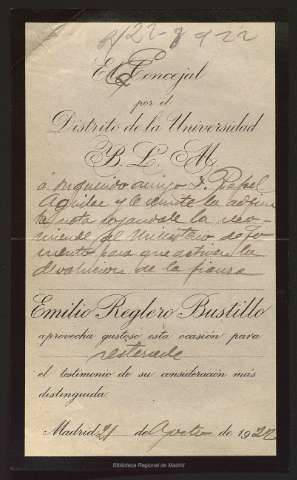 22-8-922
El Concejal
por el
Distrito de la Universidad
B. L. M
a su querido amigo D. Rafael
Aguilar y le remite la adjun
ta nota rogandole la reco
miende al Ministerio de Fo
mento para que activen la
devolucion de la fianza
Emilio Reglero Bustillo
aprovecha gustoso esta ocasión para
reiterarle
el testimonio de su consideración más
distinguida.
Madrid 21 de Agosto de 1922
Biblioteca Regional de Madrid